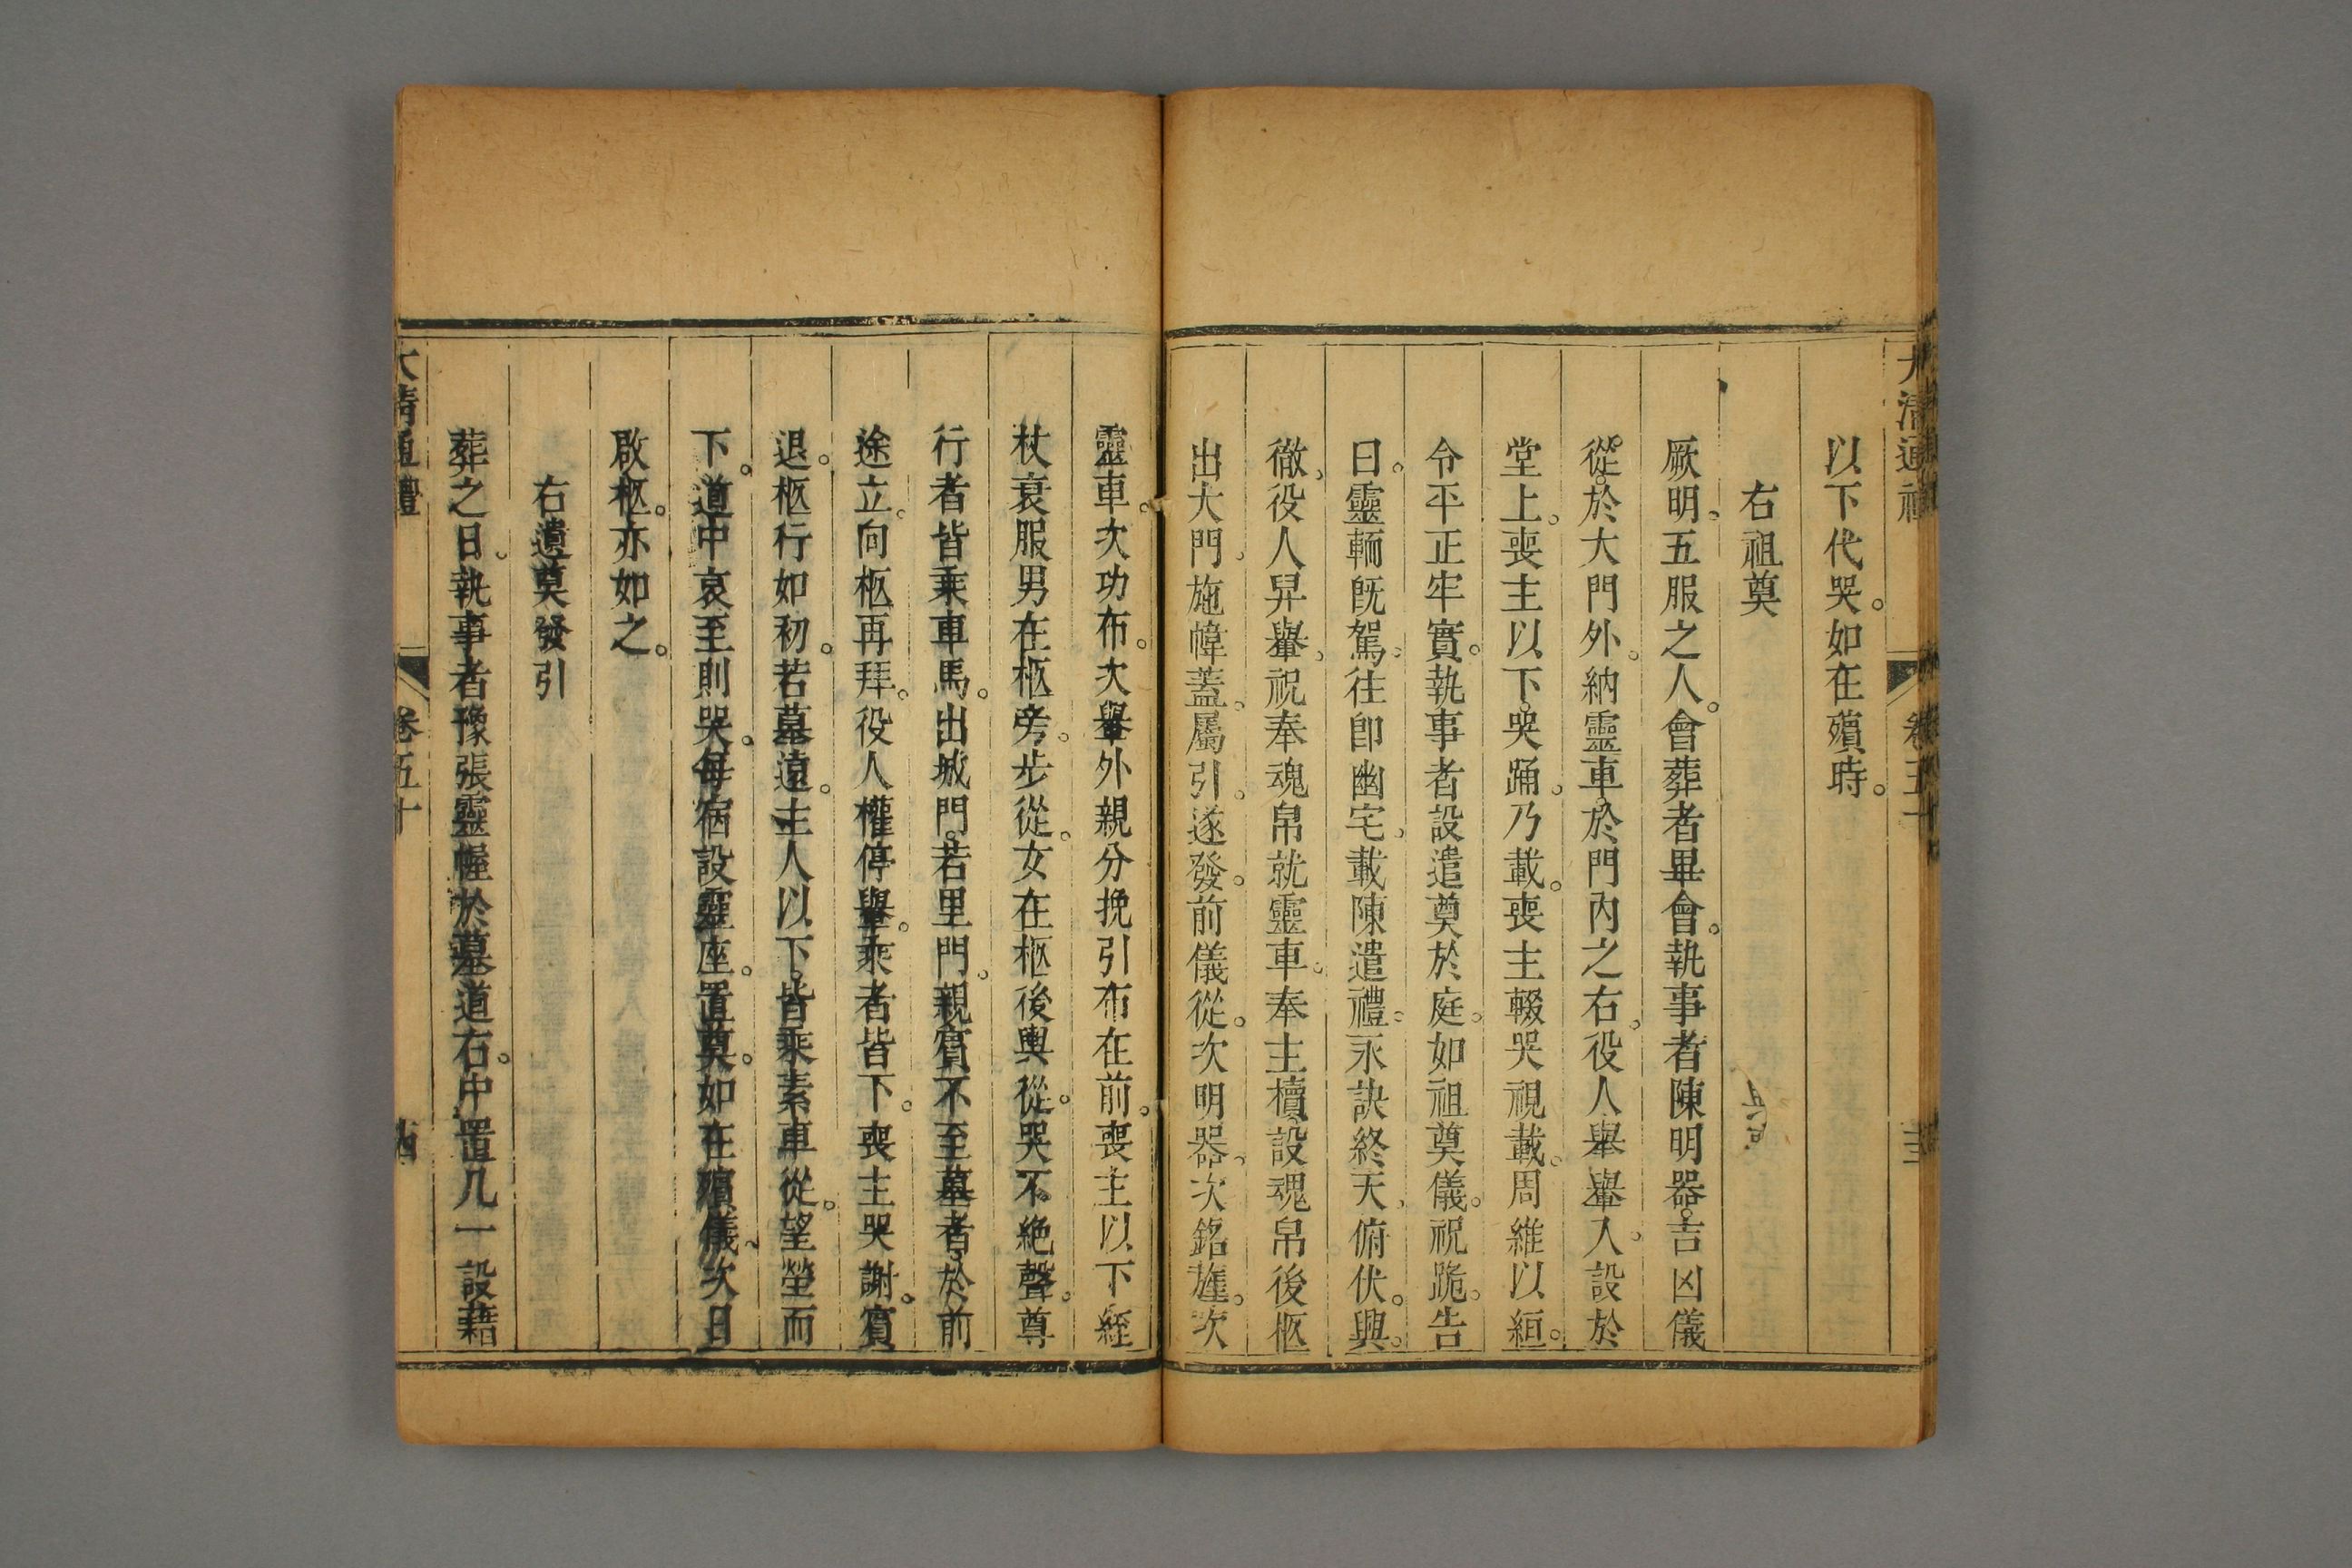 大清通禮 卷五十
以下代哭。如在殯時。
右祖奠
厥明。五服之人。會葬者畢會。執事者陳明器。吉凶儀
從。於大門外。納靈車。於門內之右。役人舉轝入。設於
堂上。喪主以下。哭踊。乃載。喪主輟哭視載。周維以絙。
令平正牢實。執事者設遣奠於庭。如祖奠儀。祝跪。告
曰。靈輀旣駕。往卽幽宅。載陳遣禮。永訣終天。俯伏。興。
徹。役人舁轝。祝奉魂帛就靈車。奉主櫝。設魂帛後。柩
出大門。施幃蓋。屬引。遂發。前儀從。次明器。次銘旌。次
靈車。次功布。次轝。外親分挽引布在前。喪主以下絰
杖衰服。男在柩旁。步從。女在柩後。輿從。哭不絶聲。尊
行者皆乘車馬。出城門。若里門。親賓不至墓者。於前
途立。向柩再拜。役人權停轝。乘者皆下。喪主哭謝。賓
退。柩行如初。若墓遠。主人以下。皆乘素車從。望塋而
下。道中哀至則哭。每宿設靈座。置奠。如在殯儀。次日
啟柩。亦如之。
右遣奠發引
葬之日。執事者豫張靈幄於墓道右。中置几一設藉
大清通禮 卷五十 四